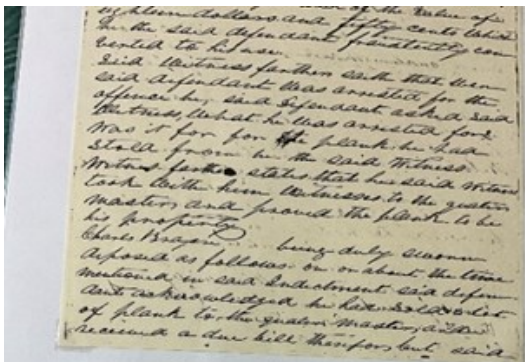 of the value of
eighteen dollars and fifty cents which
he the said defendant fraudulently con
verted to his use.
Said Witness farther saith that when
said defendant was arrested for the
offence he, said defendant asked said
Witness, what he was arrested for?
was it for for the plank he had
stold from he the said Witness.
Witness farther states that he said Witness
took with him Witnesses to the quarter
master, and proved the plank to be
his property
Charles Brazen being duly sworn
deposed as follows. on or about the time
mentioned in said Indictment said defen
dant acknowledged he had sold a lot
of plank to the quarter master, and
received a due bill therefor, but said